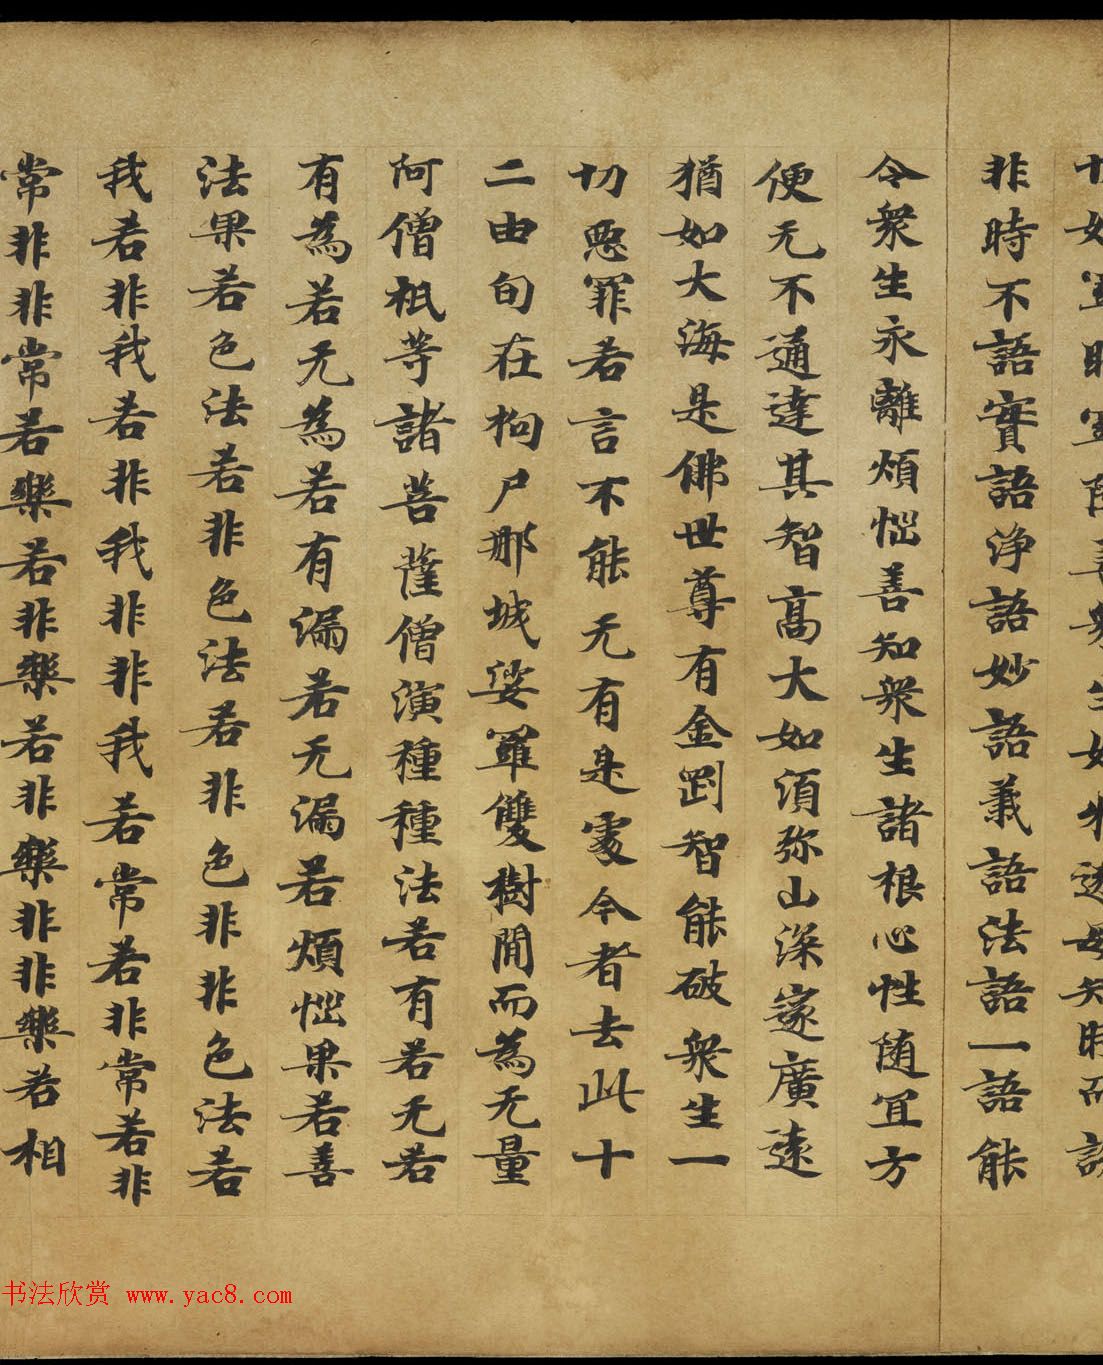 如 衆生如 逐母知時而説
非時不語實語淨語妙語義語法語一語能
令衆生永離煩惱善知衆生諸根心性随宜方
便无不通達其智高大如須弥山深邃廣遠
猶如大海是佛世尊有金剛智能破衆生一
切惡罪若言不能无有是處今者去此十
二由旬在拘尸那城娑羅雙樹間而為无量
阿僧祇等諸菩薩僧演種種法若有若无若
有為若无為若有漏若无漏若煩惱果若善
法果若色法若非色法若非色非非色法若
我若非我若非我非非我若常若非常若非
常非非常若樂若非樂若非樂非非樂若相
书法欣赏 www.yac8.com